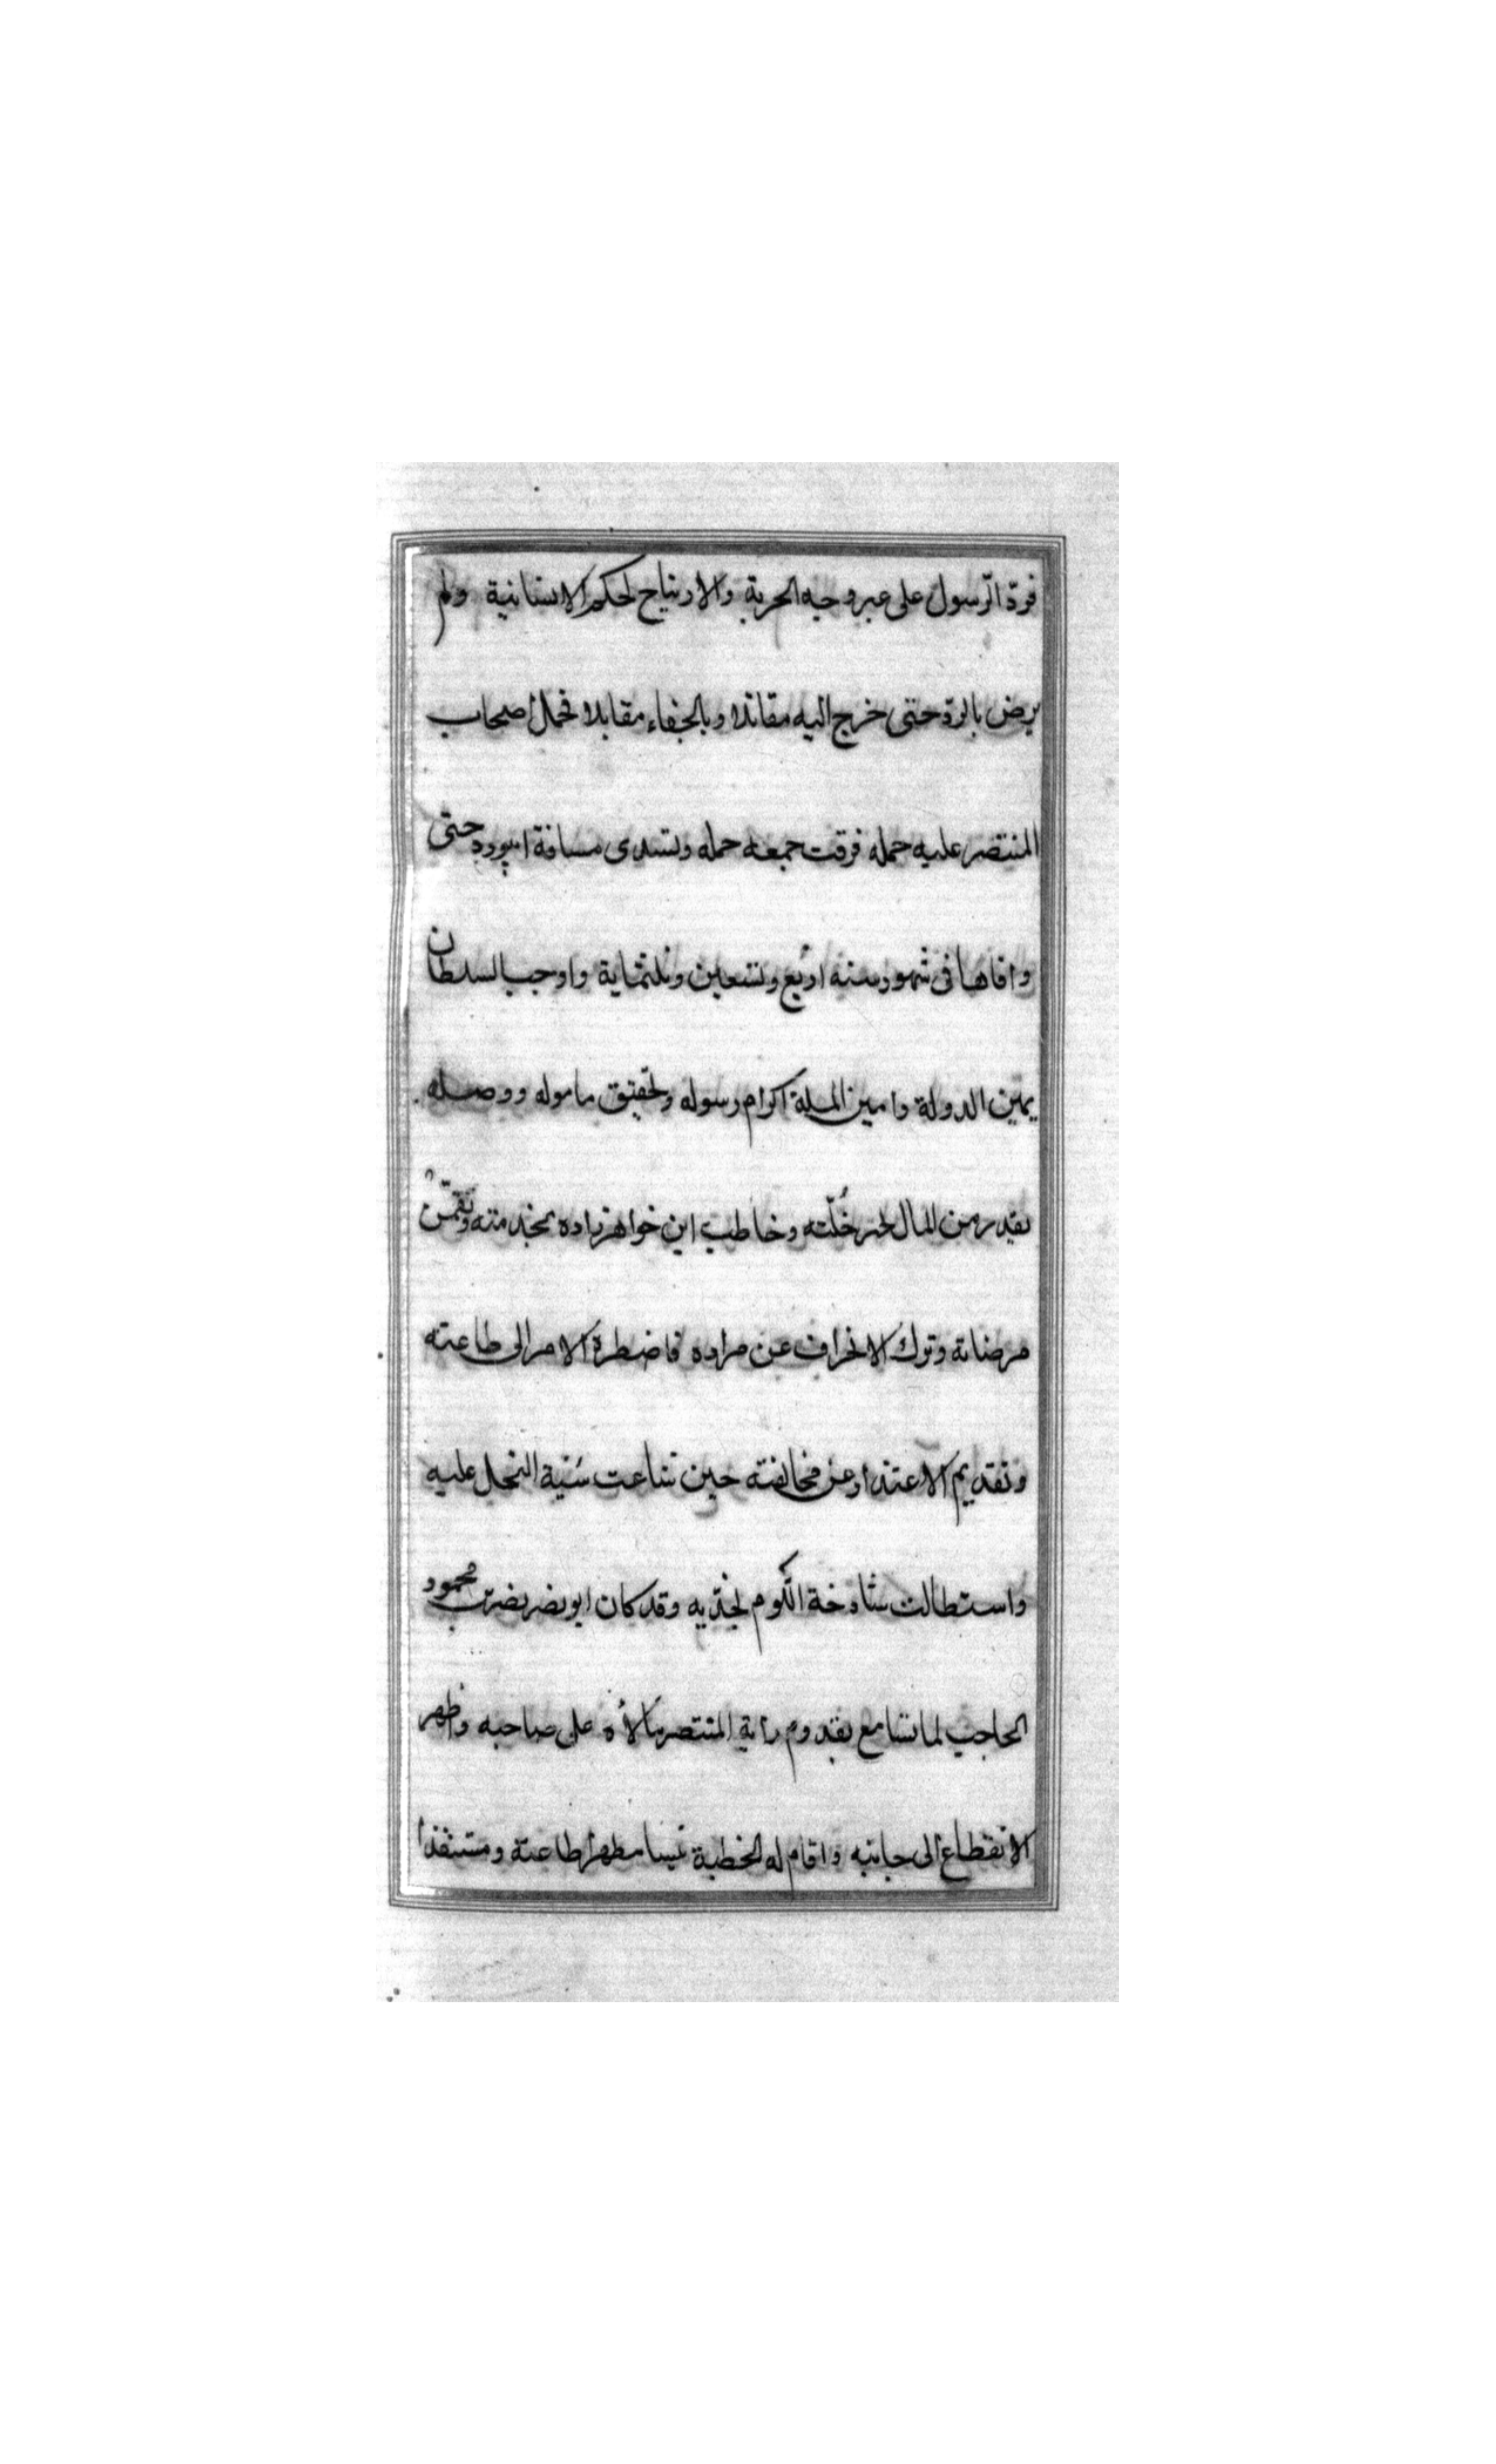 فردّ الرّسول على عير وجه الحرية والارتياح لحكم الانسانية ولم
يرض بالردّ حتى خرج اليه مقاتلا وبالجفاء مقابلا فحمل اصحاب
المنتصر عليه حمله فرقت جمعه حمله وتسدى مسافة ابيورد حتى
وافاها فى شهور سنه اربع وتسعين وثلثماية واوجب السلطان
يمين الدولة وامين الملة اكرام رسوله وتحقيق ماموله ووصله
بقدر من المال لجبر خُلّته وخاطب ابن خواهرزاده بخدمته وتقمّن
مرضاته وترك الانحراف عن مراده فاضطرة الامر الى طاعته
وتقديم الاعتذار عن مخالفته حين شاعت سُنية النحل عليه
واستطالت شاوخة اللّوم لخدّيه وقد كان ابو نصر نصر بن محمود
الحاجب لما تسامع بقدوم راية المنتصر مالأه على صاحبه وظهر
الانقطاع الى جانبه واقام له الخطبة بنسا مظهرا طاعته ومستنفذا